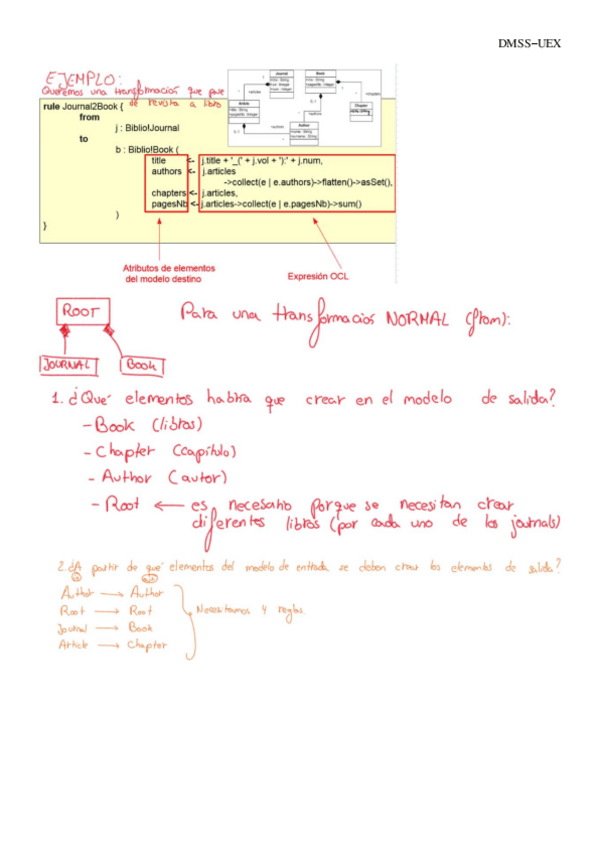 DMSS-UEX
EJEMPLO:
Queremos una transformación que pase
de revista a libro
Journal
Book
Article
Chapter
Author
rule Journal2Book {
from
j : Biblio!Journal
to
b : Biblio!Book (
title <- j.title + '_(' + j.vol + '):' + j.num,
authors <- j.articles
->collect(e | e.authors)->flatten()->asSet(),
chapters <- j.articles,
pagesNb <- j.articles->collect(e | e.pagesNb)->sum()
)
}
Atributos de elementos
del modelo destino
Expresión OCL
ROOT
JOURNAL
Book
Para una transformación NORMAL (from):
1. ¿Qué elementos habría que crear en el modelo de salida?
- Book (libros)
- Chapter (capítulo)
- Author (autor)
- Root ← es necesario porque se necesitan crear
diferentes libros (por cada uno de los journals)
2. ¿A partir de qué elementos del modelo de entrada se deben crear los elementos de salida?
Author → Author
Root → Root
Journal → Book
Article → Chapter
Necesitamos 4 reglas.